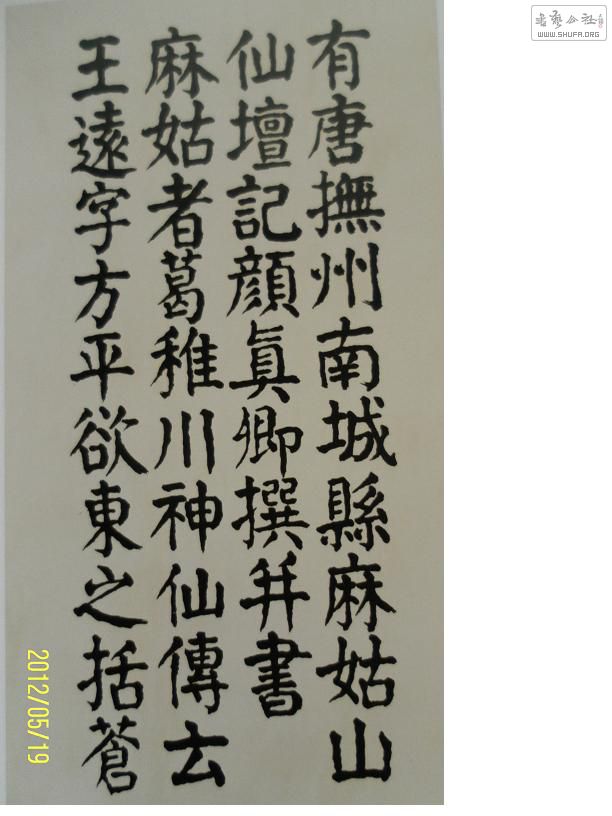 有唐撫州南城縣麻姑山
仙壇記顔真卿撰并書
麻姑者葛稚川神仙傳云
王遠字方平欲東之括蒼
2012/05/19
書藝公社
WWW.SHUFA.ORG